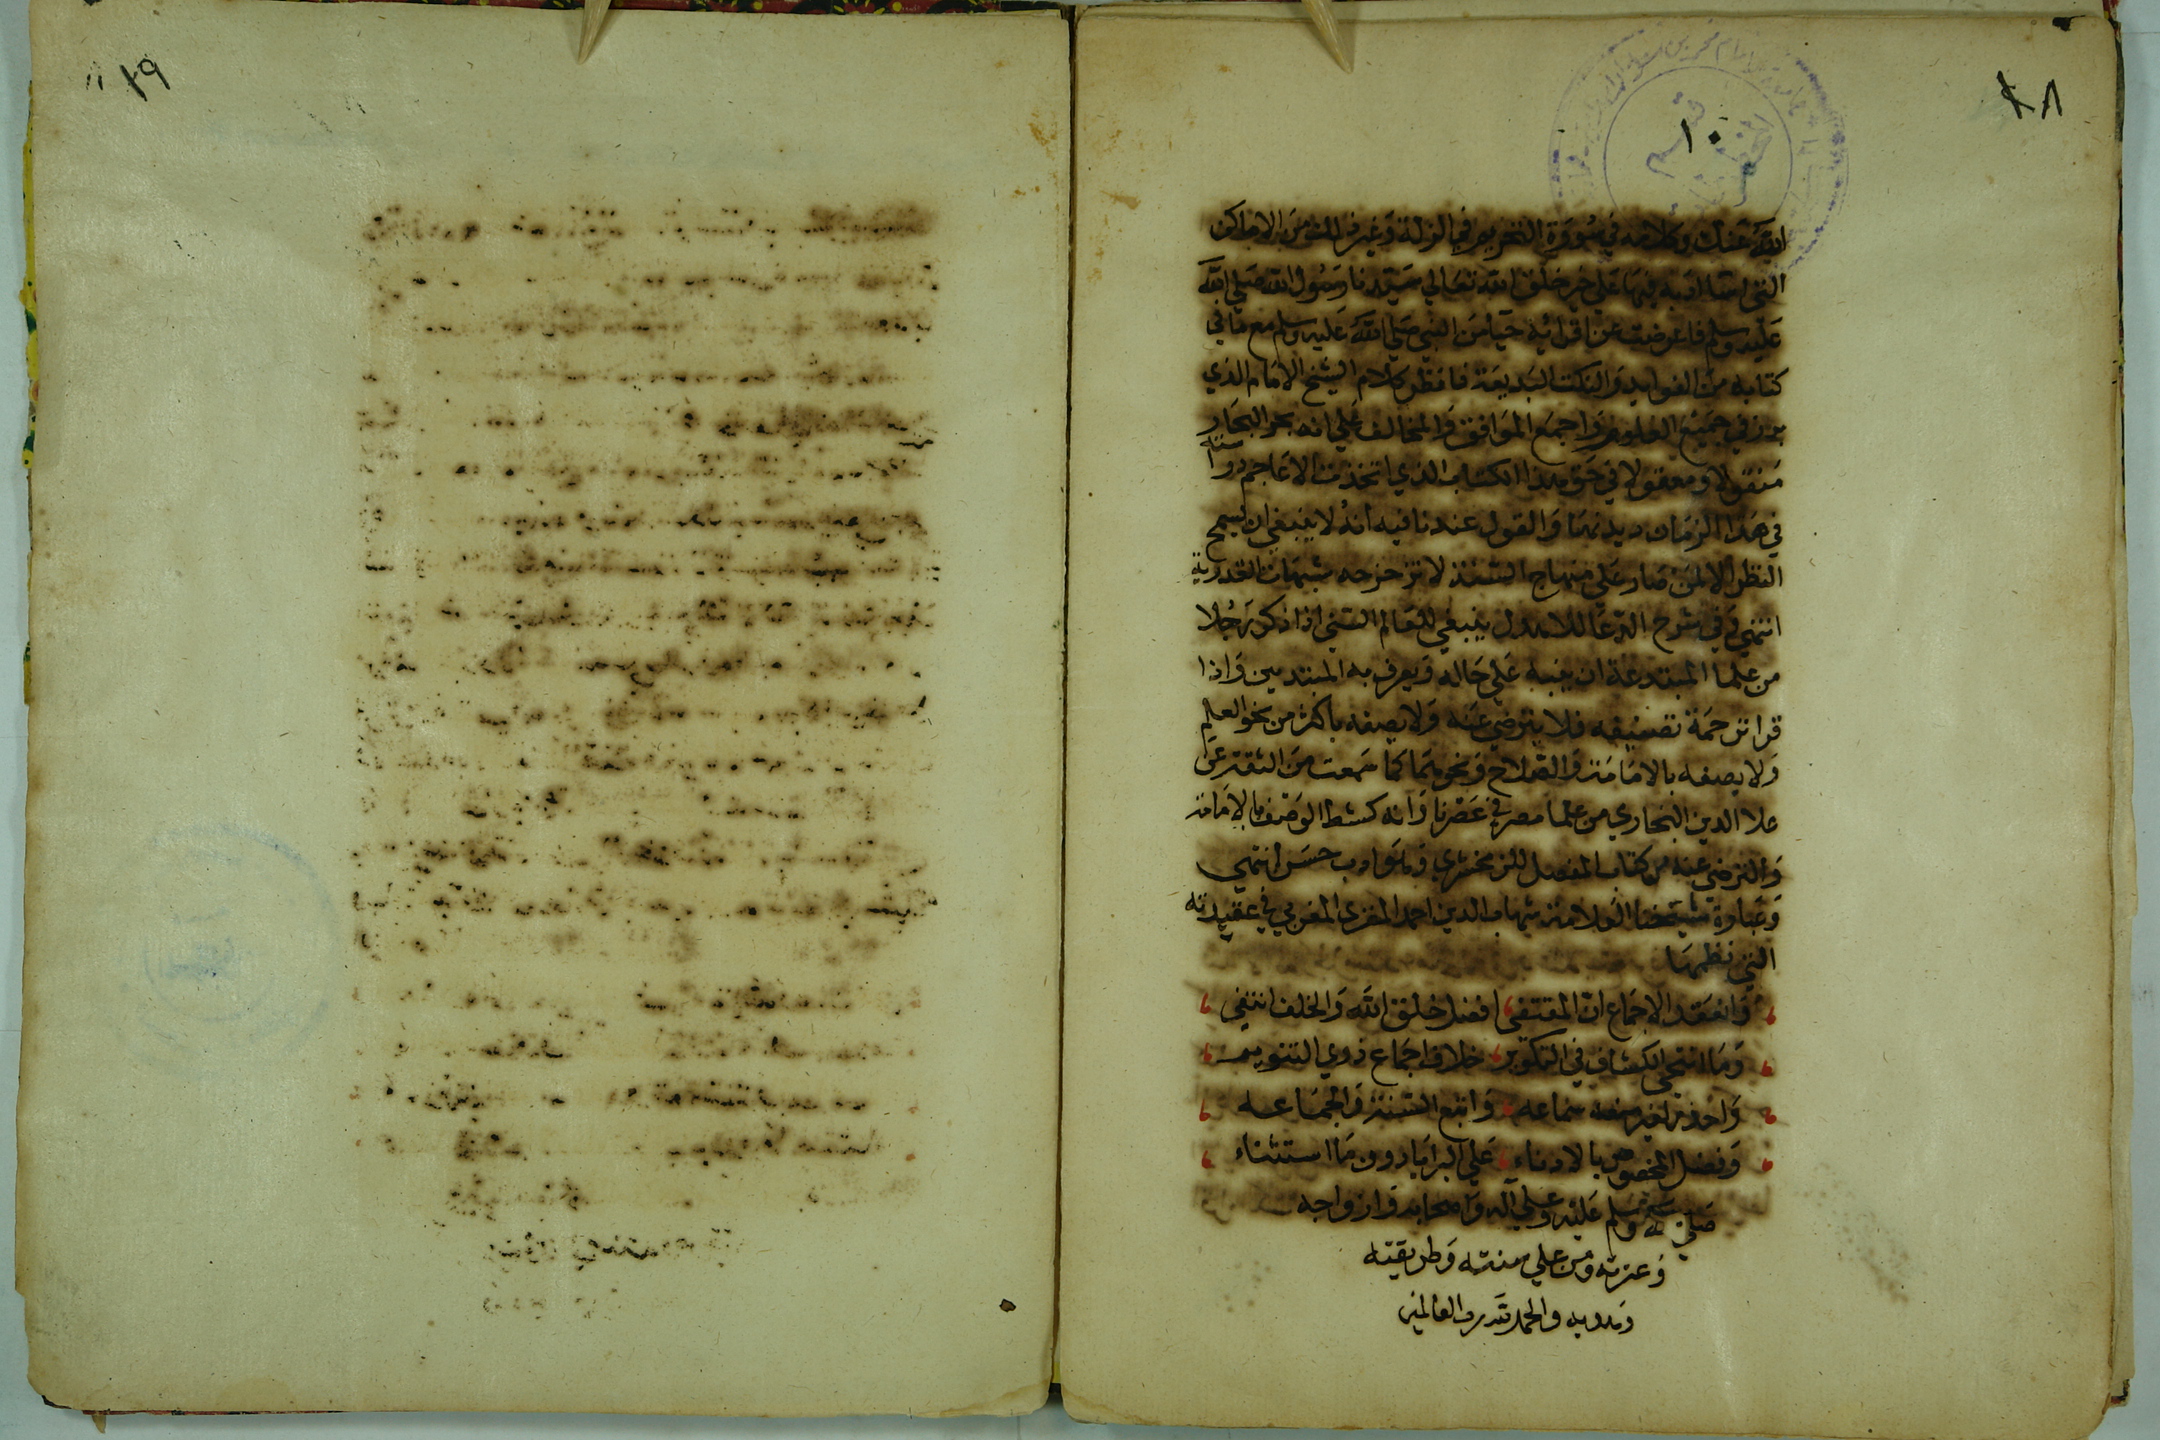 ٢٨
١٠
الله عنك وكلامه في سورة التحريم في الزلة وغير ذلك من الاماكن
التي اساء ادبه فيها على خير خلق الله تعالى سيدنا رسول الله صلى الله
عليه وسلم فاعرضت عن اقرائه حياً من النبي صلى الله عليه وسلم مع ما في
كتابه من الفوايد والنكت البديعة فانظر كلام الشيخ الامام الذي
برز في جميع العلوم واجمع الموافق والمخالف على انه بحر البحار
منقولا ومعقولا في حق هذا الكتاب الذي اتخذت الاعاجم دراسته
في هذا الزمان ديدنها والقول عندنا فيه انه لا ينبغي ان يسمح
النظر الا لمن صار على منهاج السنة لا تزحزحه شبهات القدرية
انتهى وفي شرح الدعا للاهدل ينبغي للعالم السني اذا ذكر رجلا
من علما المبتدعة ان ينبه على حاله ويعرف به المبتديين واذا
قرا ترجمة تصنيفه فلا يترضى عنه ولا يصفه باكثر من نحو العلم
ولا يصفه بالامامة والصلاح ونحوهما كما سمعت من الثقة عن
علا الدين البخاري من علما مصر في عصرنا وانه كشط الوصف بالامامة
والترضي عنه من كتاب المفصل للزمخشري وهو ادب حسن انتهى
وعبارة شيخنا العلامة شهاب الدين احمد المقري المغربي في عقيدته
التي نظمها
وانعقد الاجماع ان المقتفى افضل خلق الله والخلف انتفى
وما انتحى الكشاف في التكوير خلاف اجماع ذوي التنوير
واحذر لغير منعه سماعه واتبع السنة والجماعه
وفضل المخصوص بالادناء على البرايا دون ما استثناء
صلى الله وسلم عليه وعلى آله واصحابه وازواجه
وعترته ومن على سنته وطريقته
وذويه والحمد لله رب العالمين
٢٩